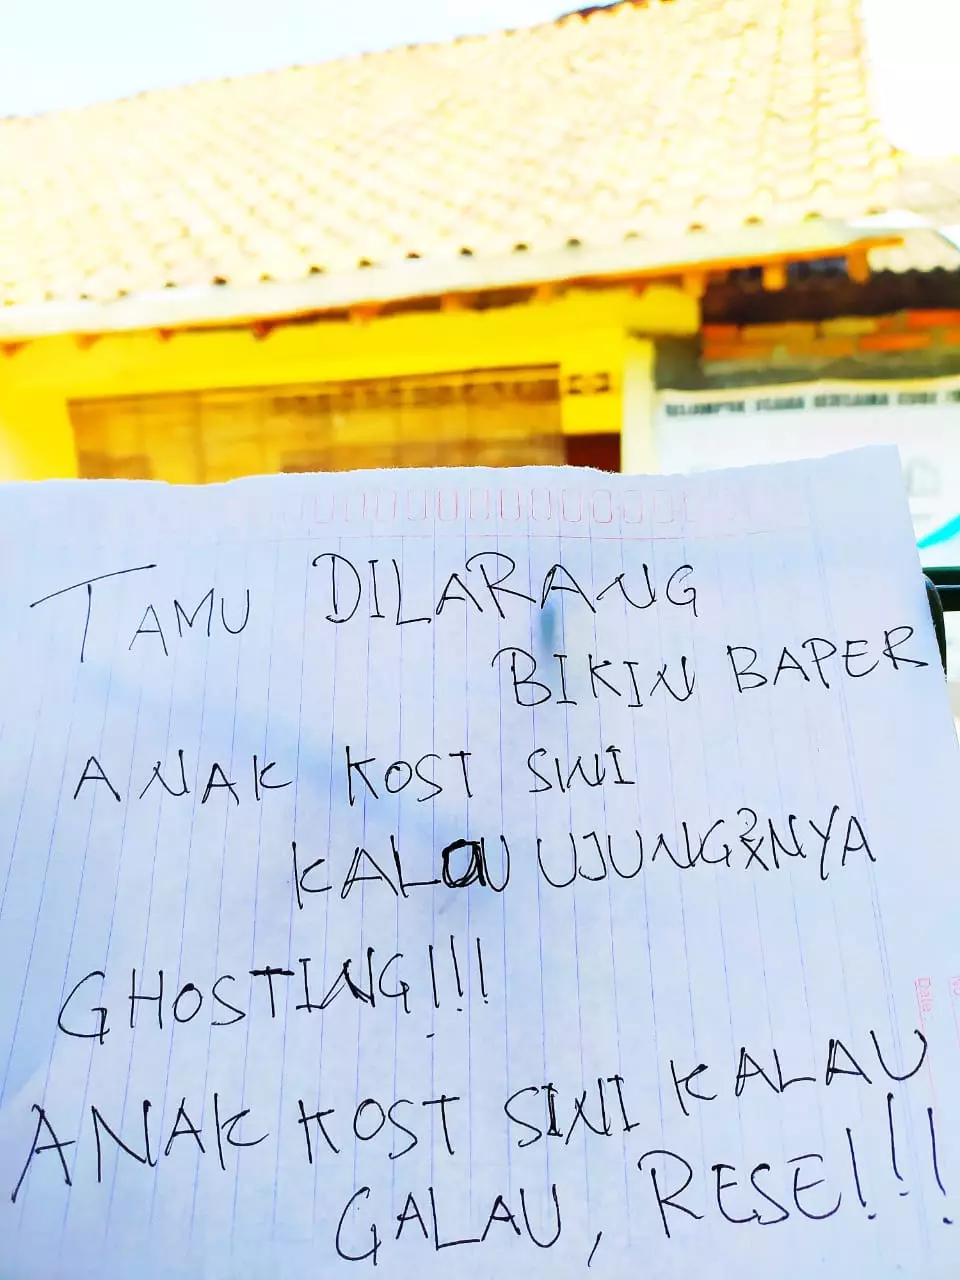 KELOMPOK USAHA BERSAMA
TAMU DILARANG
BIKIN BAPER
ANAK KOST SINI
KALAU UJUNG2NYA
GHOSTING!!!
ANAK KOST SINI KALAU
GALAU, RESE!!!
Date:
No